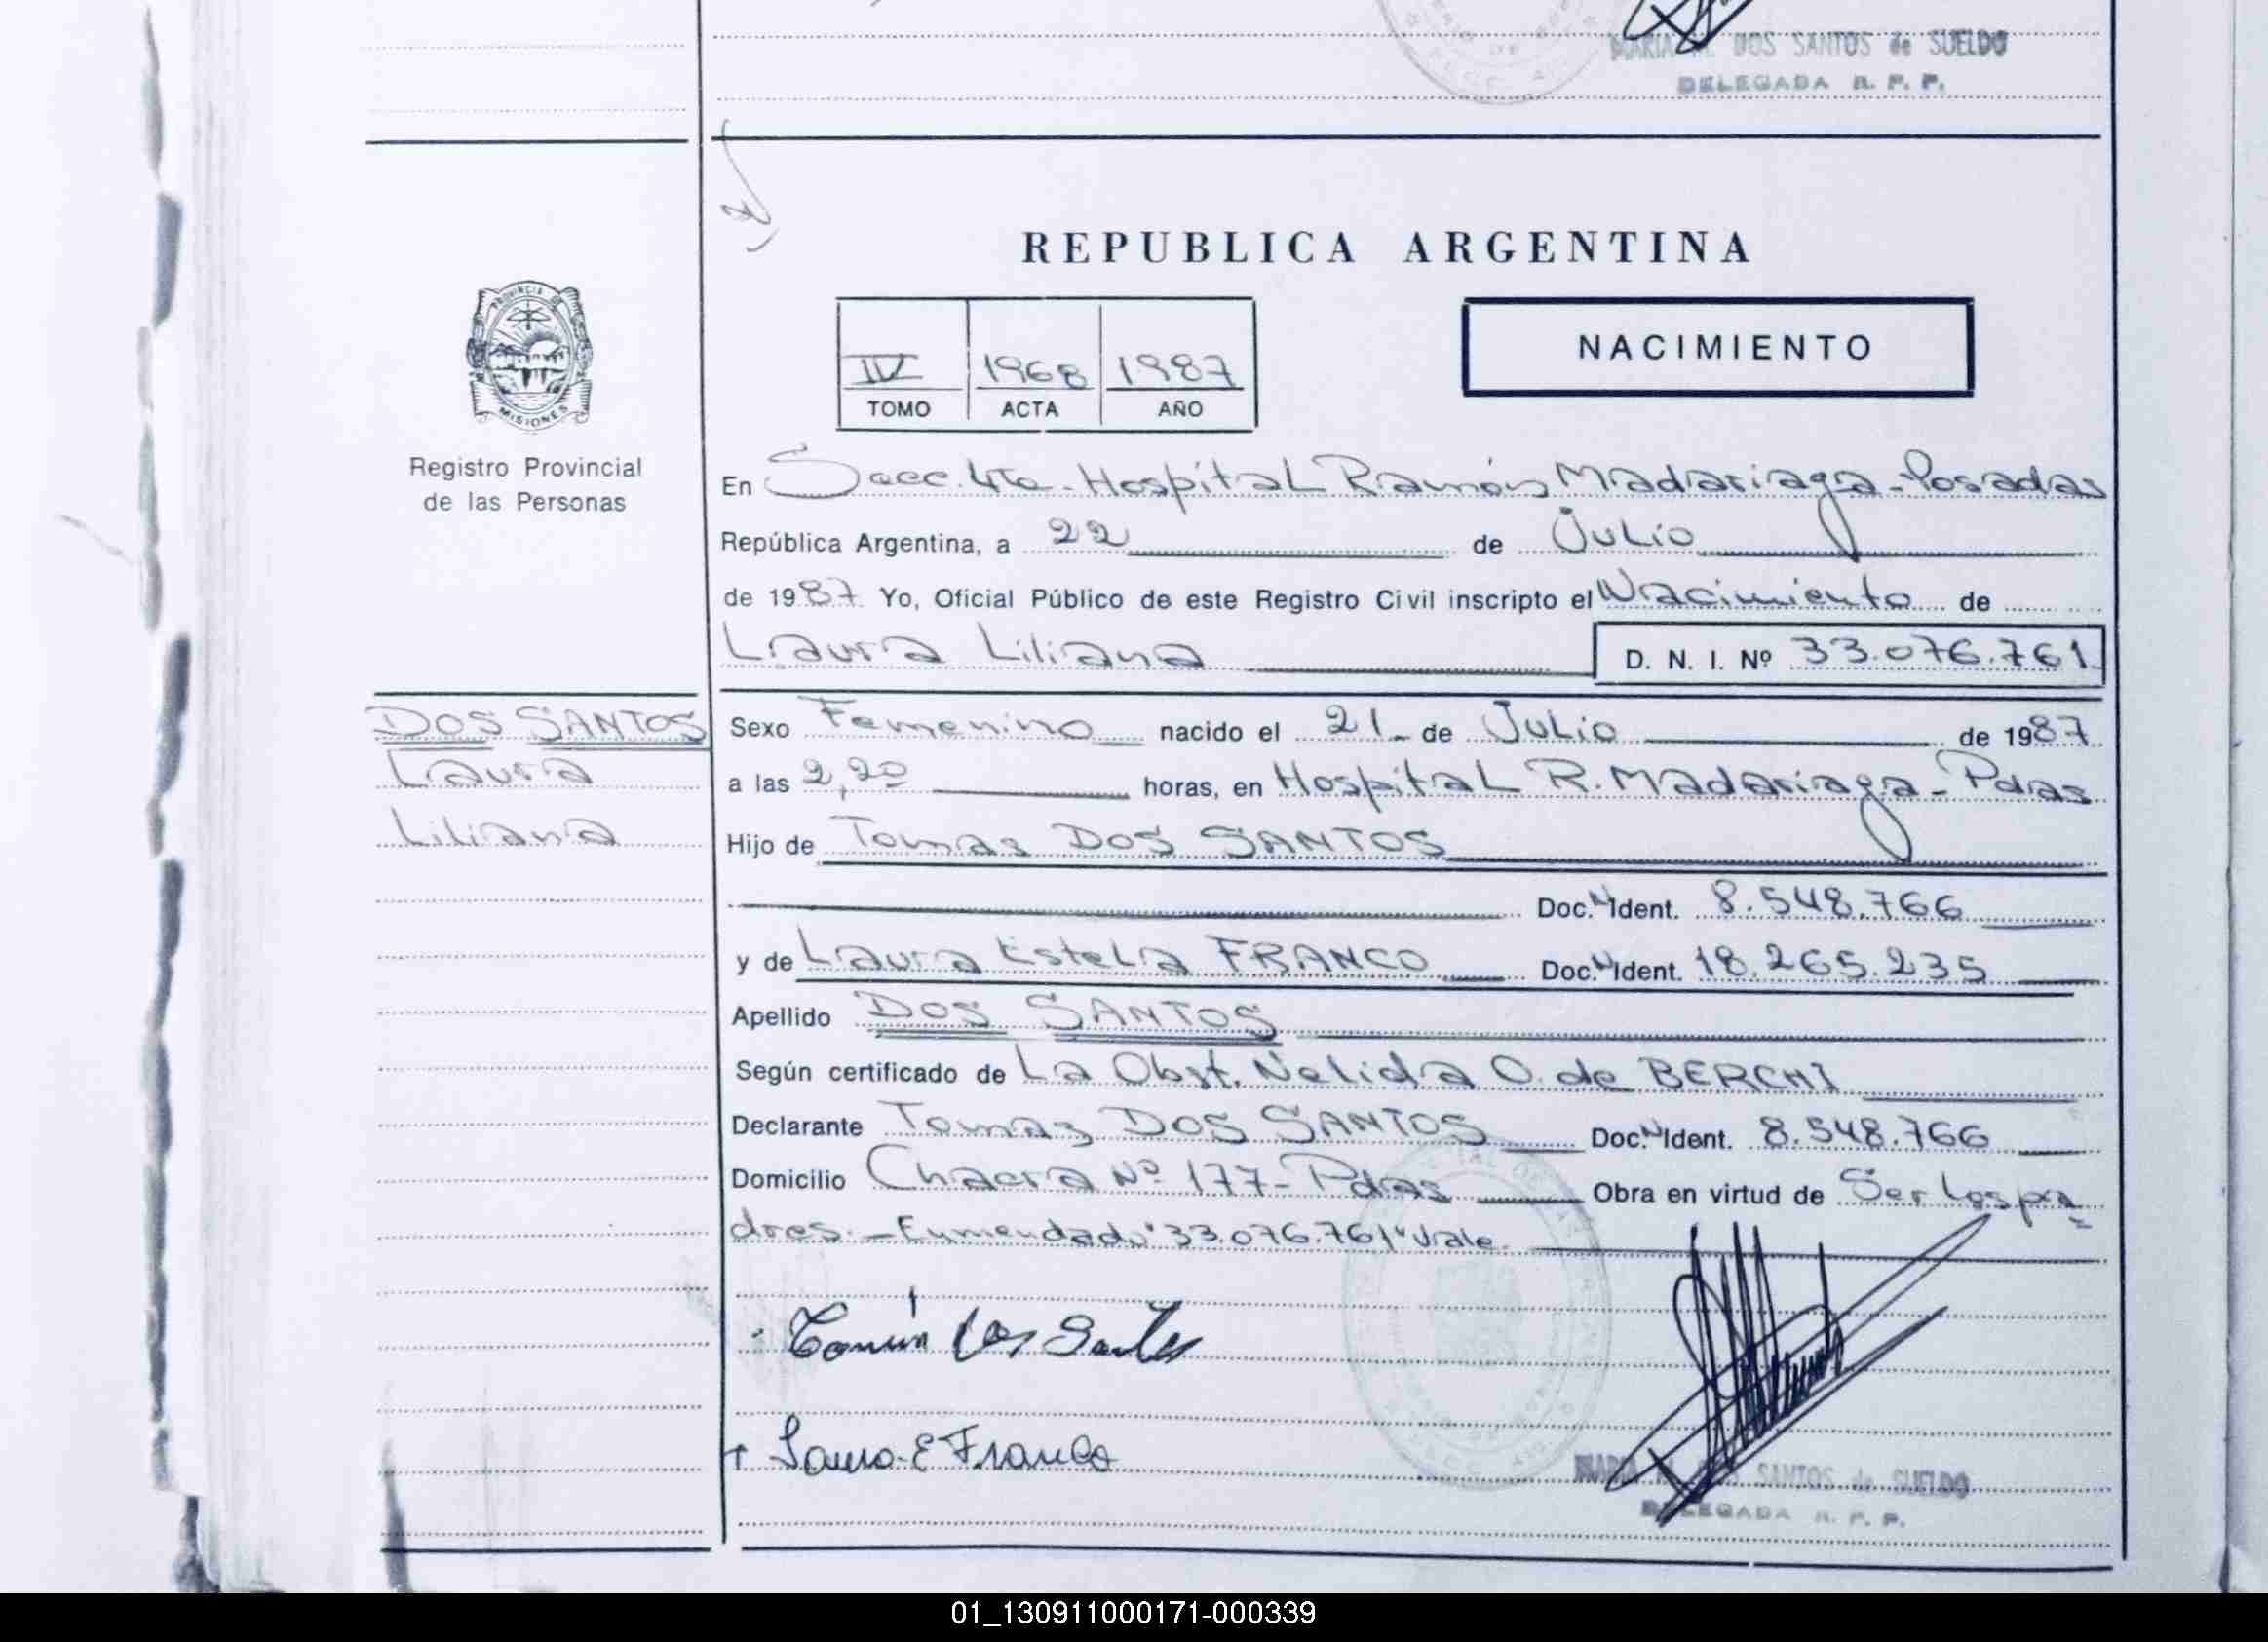 MARIA M. DOS SANTOS de SUELDO
DELEGADA R. P. P.
REPUBLICA ARGENTINA
PROVINCIA DE
MISIONES
Registro Provincial
de las Personas
IV 1968 1987
TOMO ACTA AÑO
NACIMIENTO
En Secc. 4ta - Hospital Ramón Madariaga - Posadas
República Argentina, a 22 de Julio
de 1987 Yo, Oficial Público de este Registro Civil inscripto el Nacimiento de
Laura Liliana D. N. I. Nº 33.076.761
DOS SANTOS
Laura
Liliana
Sexo Femenino nacido el 21 de Julio de 1987
a las 2,20 horas, en Hospital R. Madariaga - Pdas
Hijo de Tomas DOS SANTOS
Doc. N Ident. 8.548.766
y de Laura Estela FRANCO Doc. N Ident. 18.265.235
Apellido DOS SANTOS
Según certificado de La Obst. Nelida O. de BERCHI
Declarante Tomas DOS SANTOS Doc. N Ident. 8.548.766
Domicilio Chacra Nº 177 - Pdas Obra en virtud de Ser los pa
dres. - Enmendado "33.076.761" Vale.
Laura E Franco
MARIA M. DOS SANTOS de SUELDO
DELEGADA R. P. P.
01_130911000171-000339